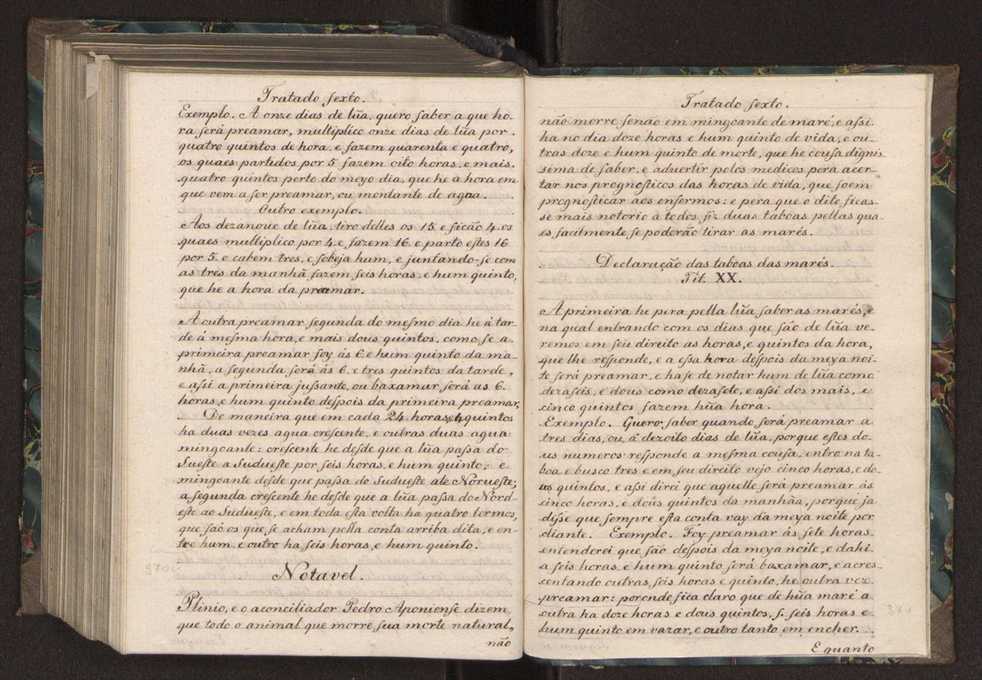 Tratado ſexto.
Exemplo. A onze dias de lũa, quero ſaber a que ho-
ra ſerá preamar, multiplico onze dias de lũa por
quatro quintos de hora, e fazem quarenta e quatro,
os quaes partidos por 5 fazem oito horas, e mais
quatro quintos perto do meyo dia, que he a hora em
que vem a ſer preamar, ou montante de agoa.
Outro exemplo.
Aos dezanove de lũa, tiro delles os 15 e ficão 4. os
quaes multiplico por 4. e fazem 16 e parto eſtes 16
por 5. e cabem tres, e ſobeja hum, e juntando-ſe com
as três da manhã fazem ſeis horas, e hum quinto,
que he a hora da preamar.
A outra preamar ſegunda do meſmo dia he á tar-
de á meſma hora, e mais dous quintos, como ſe a
primeira preamar foy ás 6 e hum quinto da ma-
nhã, a ſegunda ſerá ás 6. e tres quintos da tarde,
e aſsi a primeira juſsante, ou baxamar ſerá as 6.
horas, e hum quinto deſpois da primeira preamar,
De maneira que em cada 24 horas, e 4 quintos
ha duas vezes agua creſcente, e outras duas agua
mingoante: creſcente he deſde que a lũa paſsa do
Sueſte a Sudueſte por ſeis horas, e hum quinto; e
mingoante deſde que paſsa do Sudueſte até Norueſte;
a ſegunda creſcente he deſde que a lũa paſsa do Nord-
eſte ao Sudueſte, e em toda eſta volta ha quatro termos,
que ſaõ os que ſe acham pella conta arriba dita, e en-
tre hum, e outro ha ſeis horas, e hum quinto.
Notavel.
Plinio, e o aconciliador Pedro Aponienſe dizem,
que todo o animal que morre ſua morte natural,
não
Tratado ſexto.
não morre ſenão em mingoante de maré, e aſsi
ha no dia doze horas e hum quinto de vida, e ou-
tras doze e hum quinto de morte, que he couſa dignis
sima de ſaber, e advertir pelos medicos pera acer-
tar nos prognoſticos das horas de vida, que ſoem
prognoſticar aos enfermos: e pera que o dito ficas-
se mais notorio á todos fiz duas taboas pellas qua-
es facilmente ſe poderão tirar as marés.
Declaração das taboas das marés.
Tit. XX.
A primeira he pera pella lũa ſaber as marés, e
na qual entrando com os dias que ſão de lũa ve-
remos em ſeu direito as horas, e quintos da hora,
que lhe reſponde, e a eſsa hora deſpois da meya noi-
te ſerá preamar, e haſe de notar hum de lũa como
dezaſeis, e dous como dezaſete, e aſsi dos mais, e
cinco quintos fazem hũa hora.
Exemplo. Quero ſaber quando ſerá preamar a
tres dias, ou á dezoito dias de lũa, porque eſtes do-
us numeros reſponde a meſma couſa, entro na ta-
boa e buſco tres e em ſeu direito vejo cinco horas, e do-
us quintos, e aſsi direi que aquelle ſerá preamar ás
cinco horas, e doús quintos da manhãa, porque ja
dísse que ſempre eſta conta vay da meya noite por
diante. Exemplo. Foy preamar ás ſete horas,
entenderei que ſão deſpois da meya noite, e dahi
a ſeis horas, e hum quinto ſerá baxamar, e acres-
centando outras ſeis horas e quinto, he outra vez
preamar: porende fica claro que de hũa maré a
outra ha doze horas e dous quintos, ſ. ſeis horas e
hum quinto em vazar, e outro tanto em encher.
E quanto